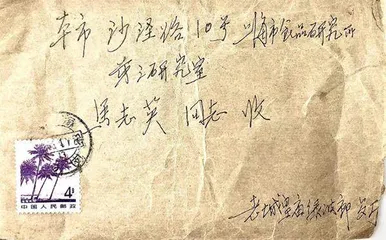 本市 沙泾路10号 上海市食品研究所
第三研究室
馬志英 同志 收
4分
中国人民邮政
老城隍庙